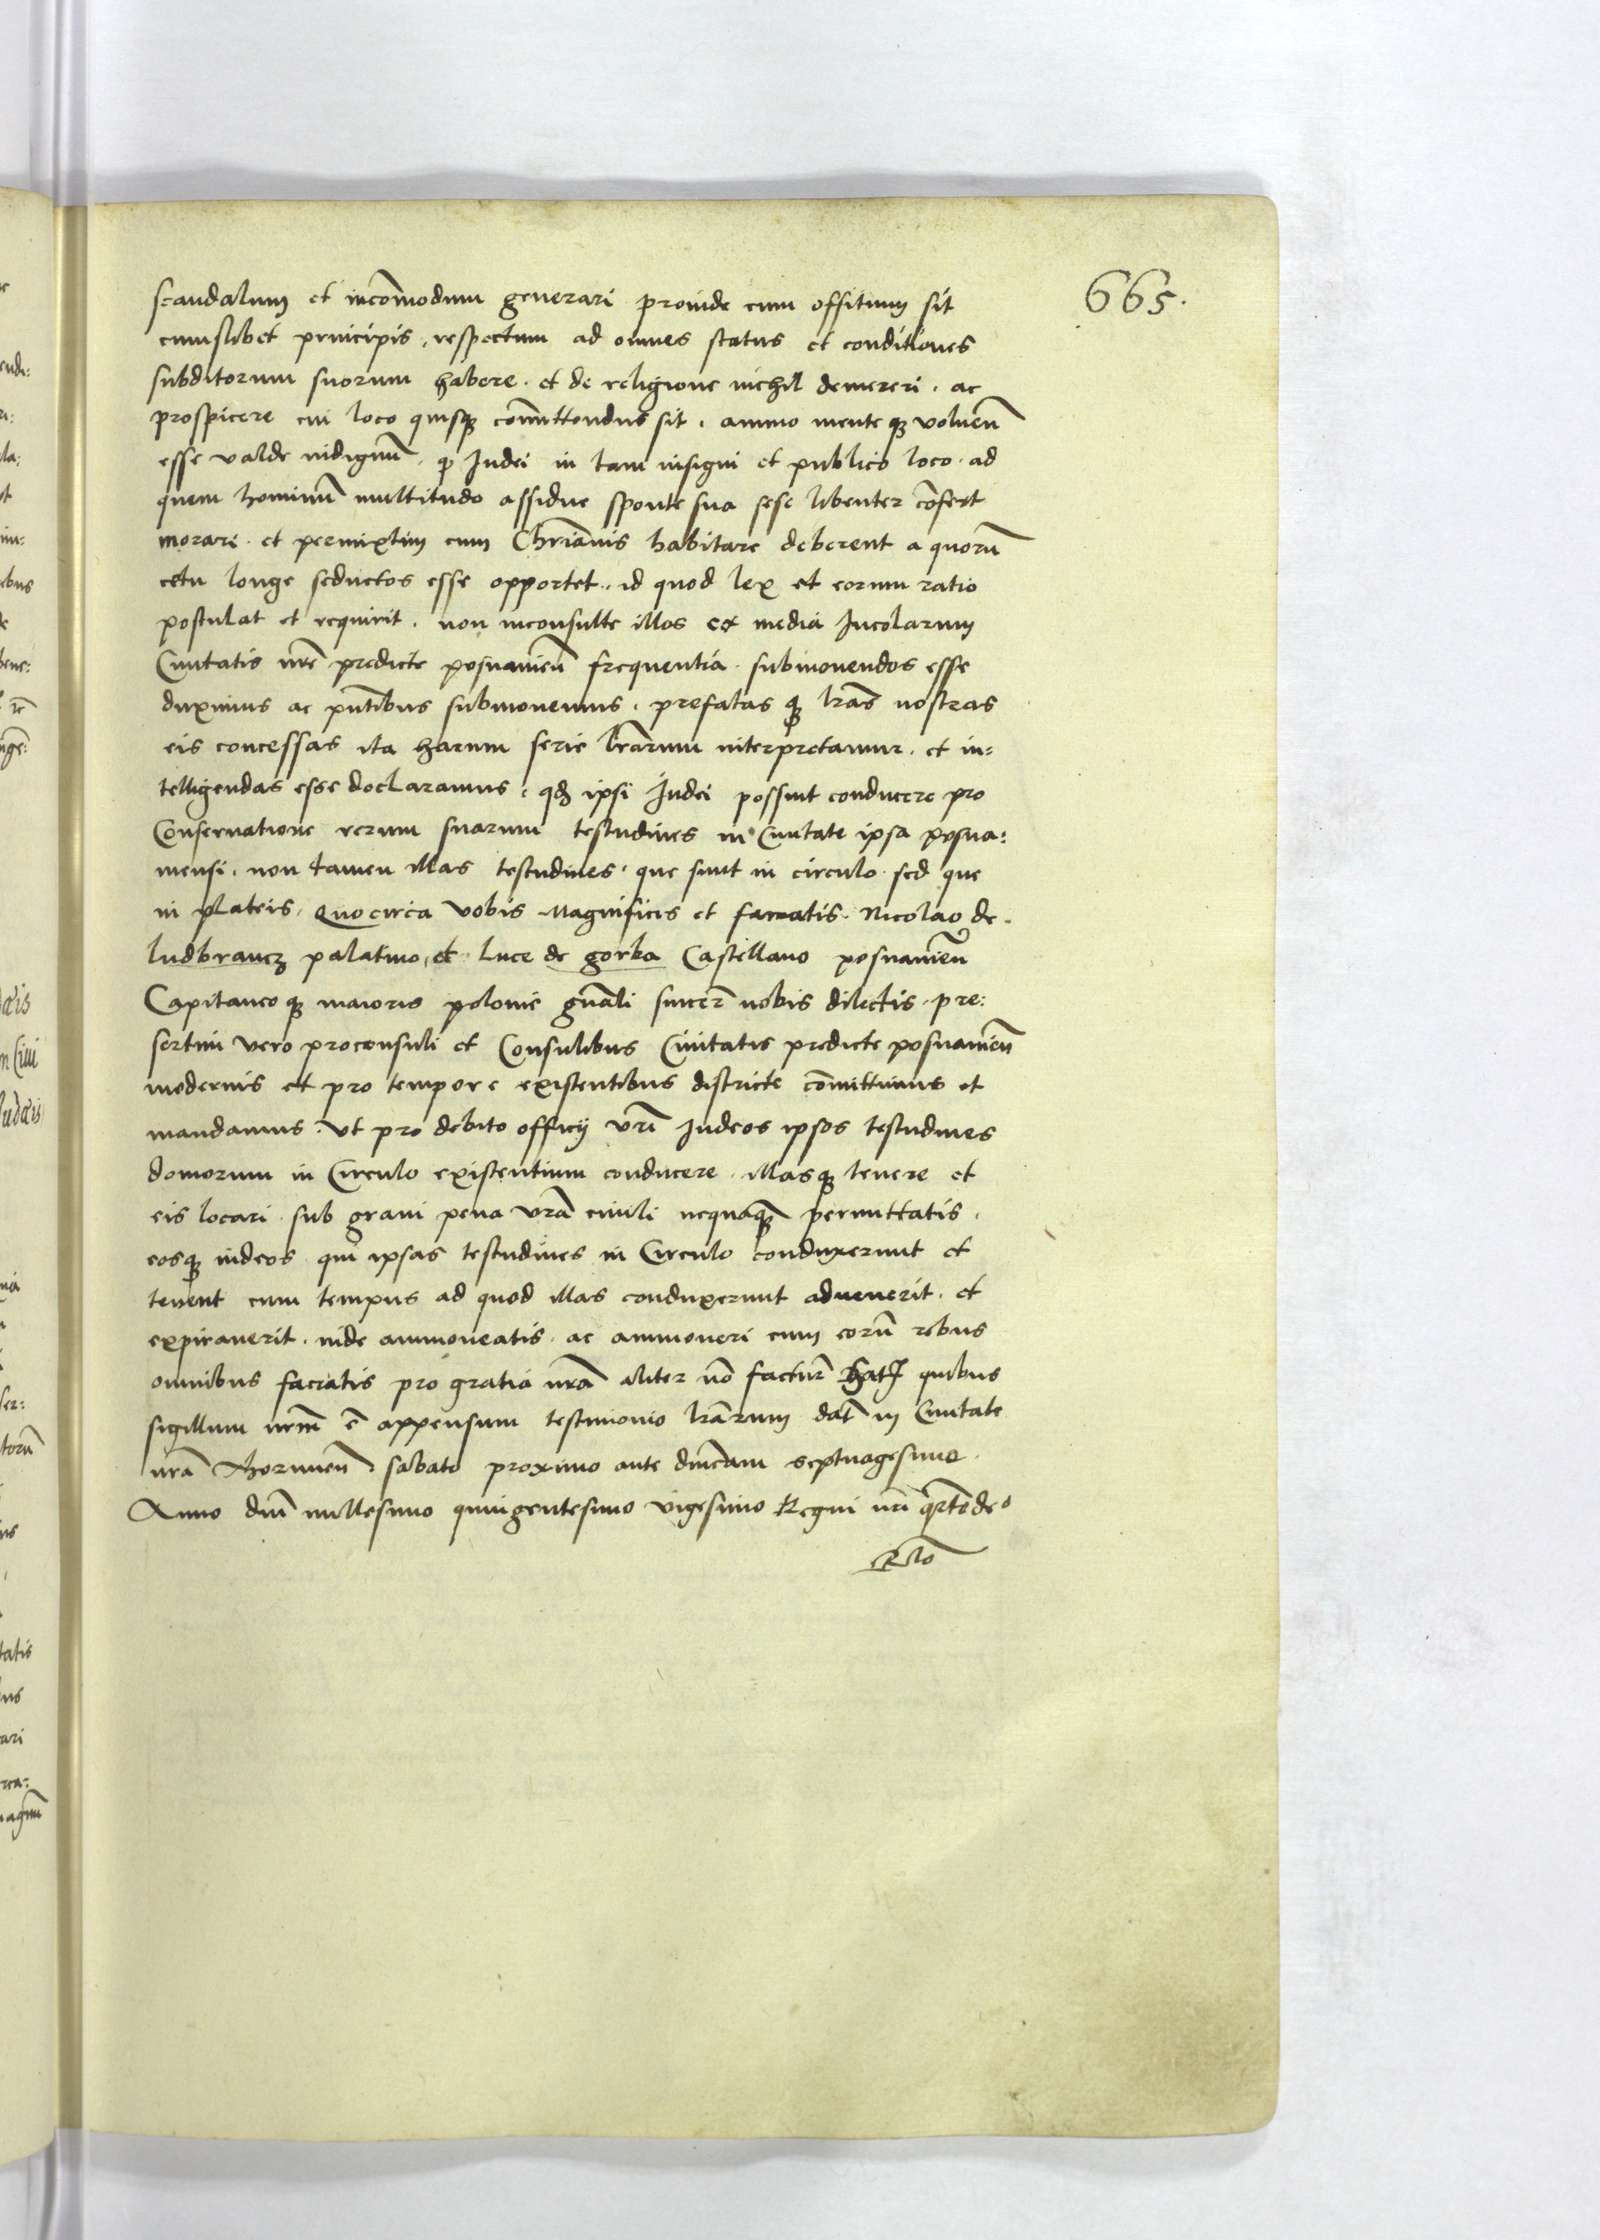 665.
scandalum et incōmodum generari proinde cum offitium sit
cuiuslibet principis, respectum ad omnes status et conditiones
subditorum suorum habere. et de religione nichil demereri. ac
prospicere cui loco quisq̨ com̄ittendus sit. animo mente q̨ voluen̄
esse valde indignū. q̨ Iudei in tam insigni et publico loco. ad
quem hominū multitudo assidue sponte sua sese libenter cōfert
morari. et permixtim cum Chrīanis habitare deberent a quorū
cetu longe seductos esse opportet. id quod lex et eorum ratio
postulat et requirit. non inconsulte illos ex media Incolarum
Ciuitatis nrē predicte posnanien̄ frequentia. submouendos esse
duximus ac pn̄tibus submouemus. prefatas q̨ lrās nostras
eis concessas ita harum serie lrārum interpretamur. et in=
telligendas esse declaramus. qđ ipsi Iudei possint conducere pro
Conseruatione rerum suarum testudines in Ciuitate ipsa posna:
niensi. non tamen illas testudines. que sunt in circulo sed que
in plateis. Quocirca vobis Magnificis et famatis. Nicolao de.
ludbrancz palatino, et Luce de gorka Castellano posnanien̄
Capitaneo q̨ maioris polonie gn̄ali sincer̄ nobis dilectis. pre:
sertim vero proconsuli et Consulibus Ciuitatis predicte posnanien̄
modernis et pro tempore existentibus districte cōmittimus et
mandamus. vt pro debito officij vrī Iudeos ipsos testudines
domorum in Circulo existentium conducere. illasq̨ tenere et
eis locari. sub graui pena vrā ciuili nequaq̨ permittatis.
eosq̨ iudeos qui ipsas testudines in Circulo conduxerunt et
tenent cum tempus ad quod illas conduxerunt aduenerit. et
expirauerit. inde ammoueatis. ac ammoueri cum eorū rebus
omnibus faciatis pro gratia nrā aliter nō factur̄ quibus
sigillum nrm̄ ē appensum testimonio lrārum dat̄ in Ciuitate
nrā Thorunien̄. sabato proximo ante dn̄icam septuagesime.
Anno dn̄i millesimo quingentesimo vigesimo Regni nrī